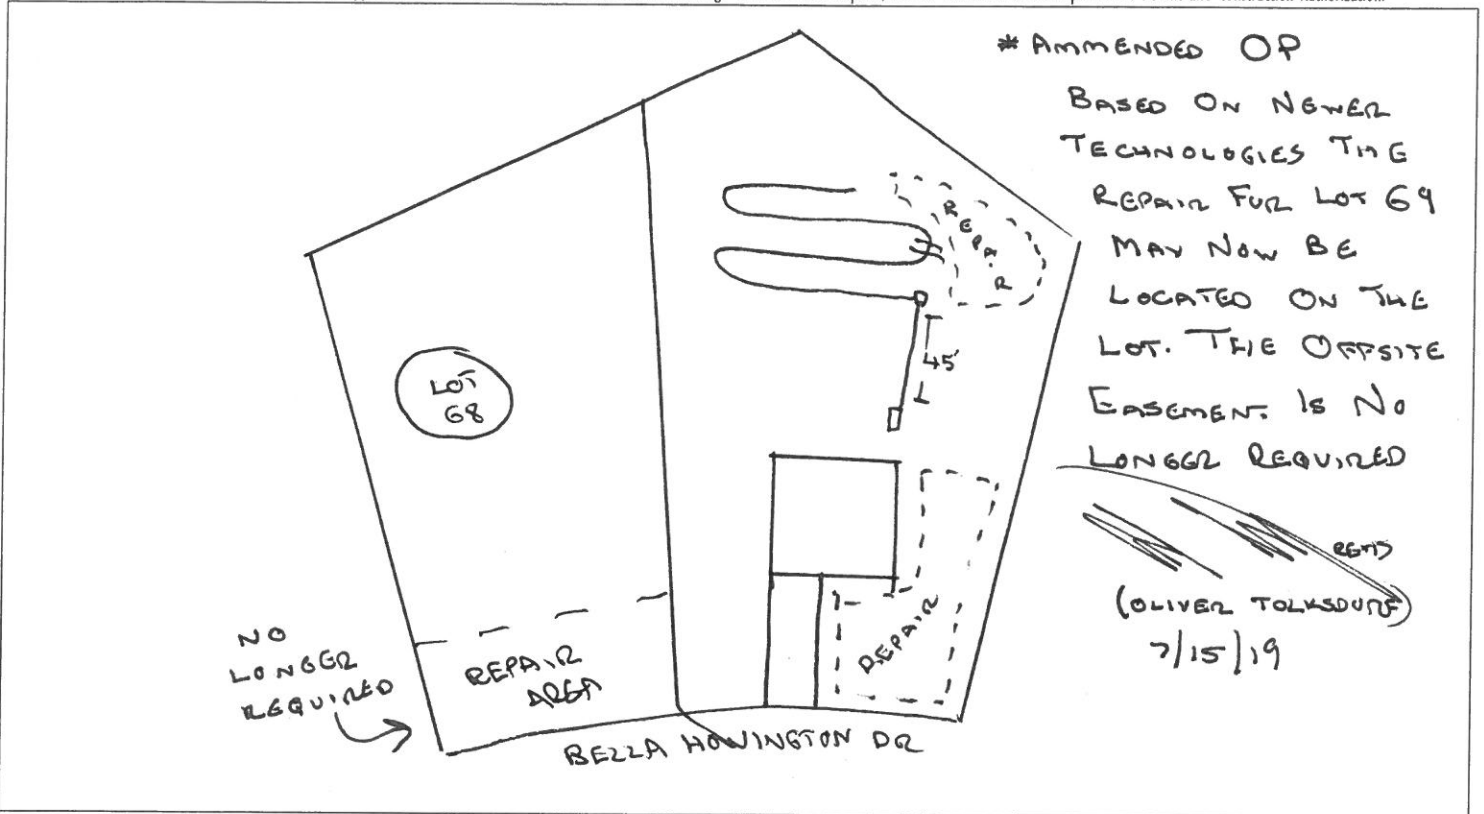 * AMMENDED OP
BASED ON NEWER
TECHNOLOGIES THE
REPAIR FUR LOT 69
MAY NOW BE
LOCATED ON THE
LOT. THE OFFSITE
EASEMENT IS NO
LONGER REQUIRED
REHS
(OLIVER TOLKSDURF)
7/15/19
REPAIR
45'
LOT
68
REPAIR
REPAIR
AREA
NO
LONGER
REQUIRED
BELLA HOWINGTON DR